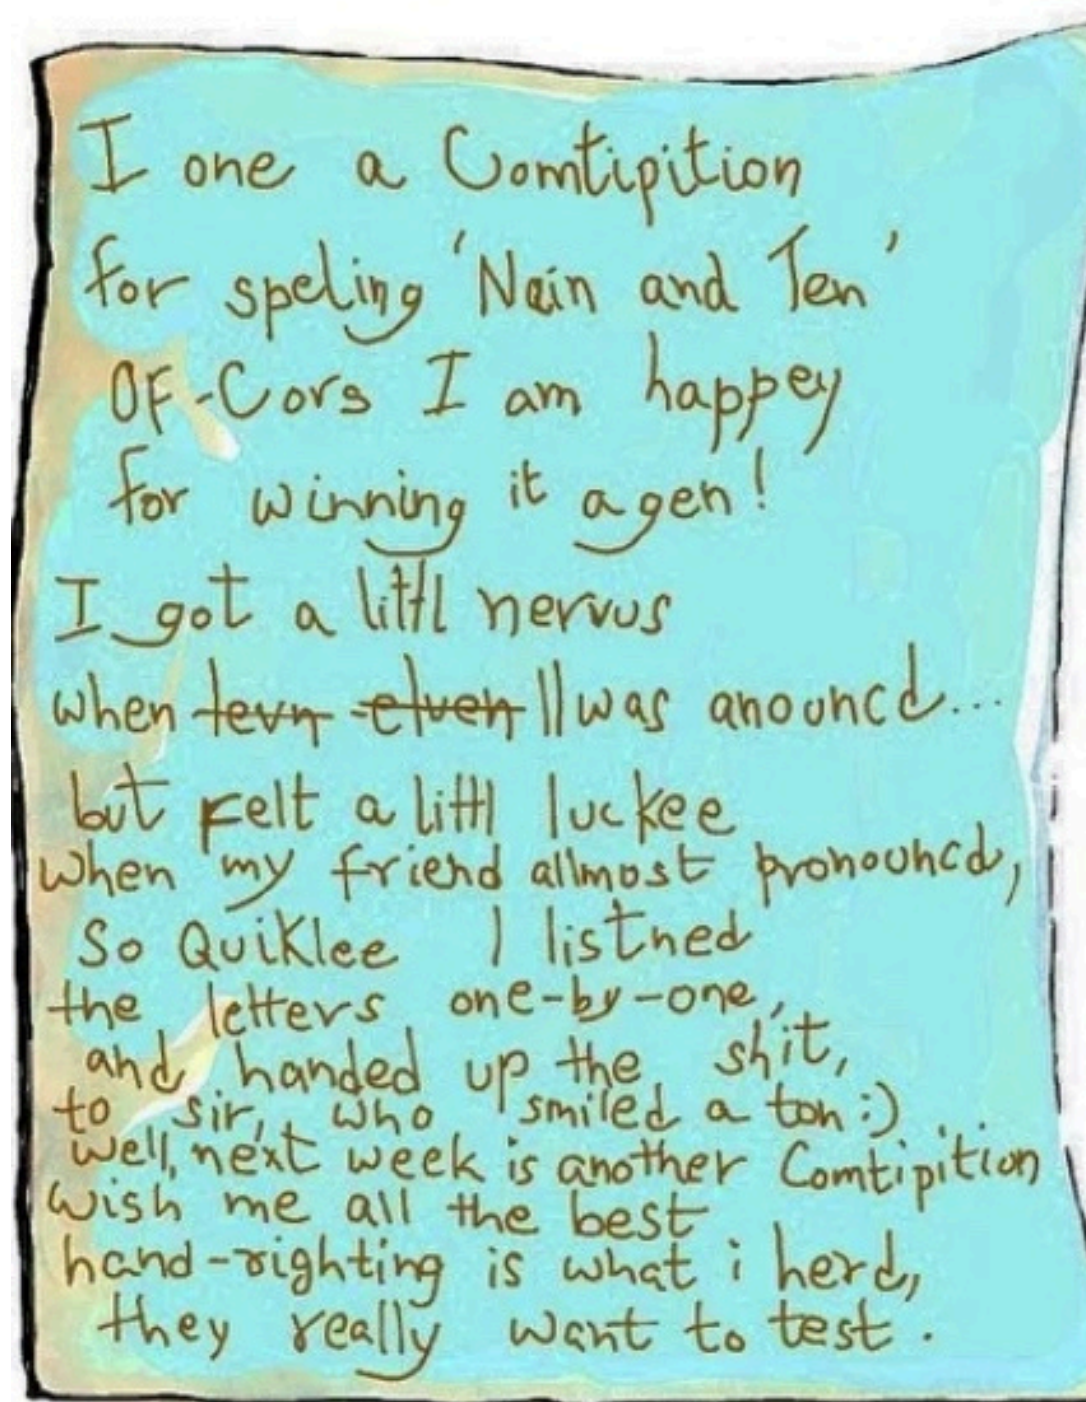 I one a Comtipition
for speling 'Nain and Ten'
OF-Cors I am happey
for winning it agen!
I got a littl nervus
when tevn elven 11 was anouncd...
but felt a littl luckee
when my friend allmost pronouncd,
So Quiklee I listned
the letters one-by-one,
and handed up the shit,
to sir, who smiled a ton :)
well, next week is another Comtipition
wish me all the best
hand-righting is what i herd,
they really want to test.